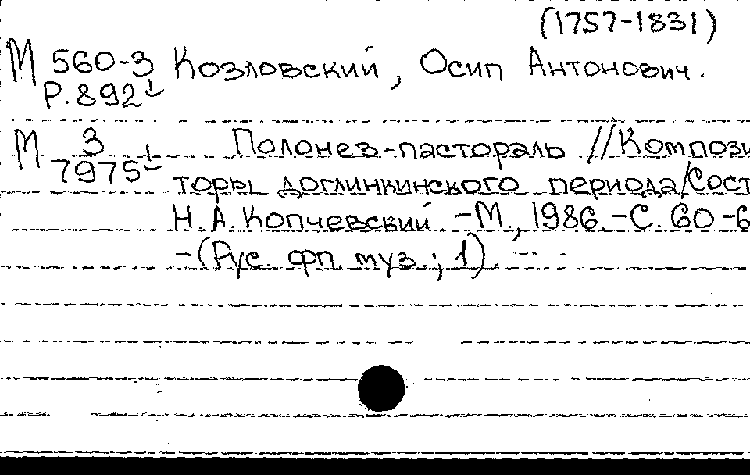 (1757-1831)
М 560-3 Козловский, Осип Антонович.
Р.892
М 3 Полонез-пастораль // Компози
7975 торы доглинкинского периода/Сост
Н.А.Копчевский -М, 1986.-С. 60-6
-(Рус. фп муз ; 1)